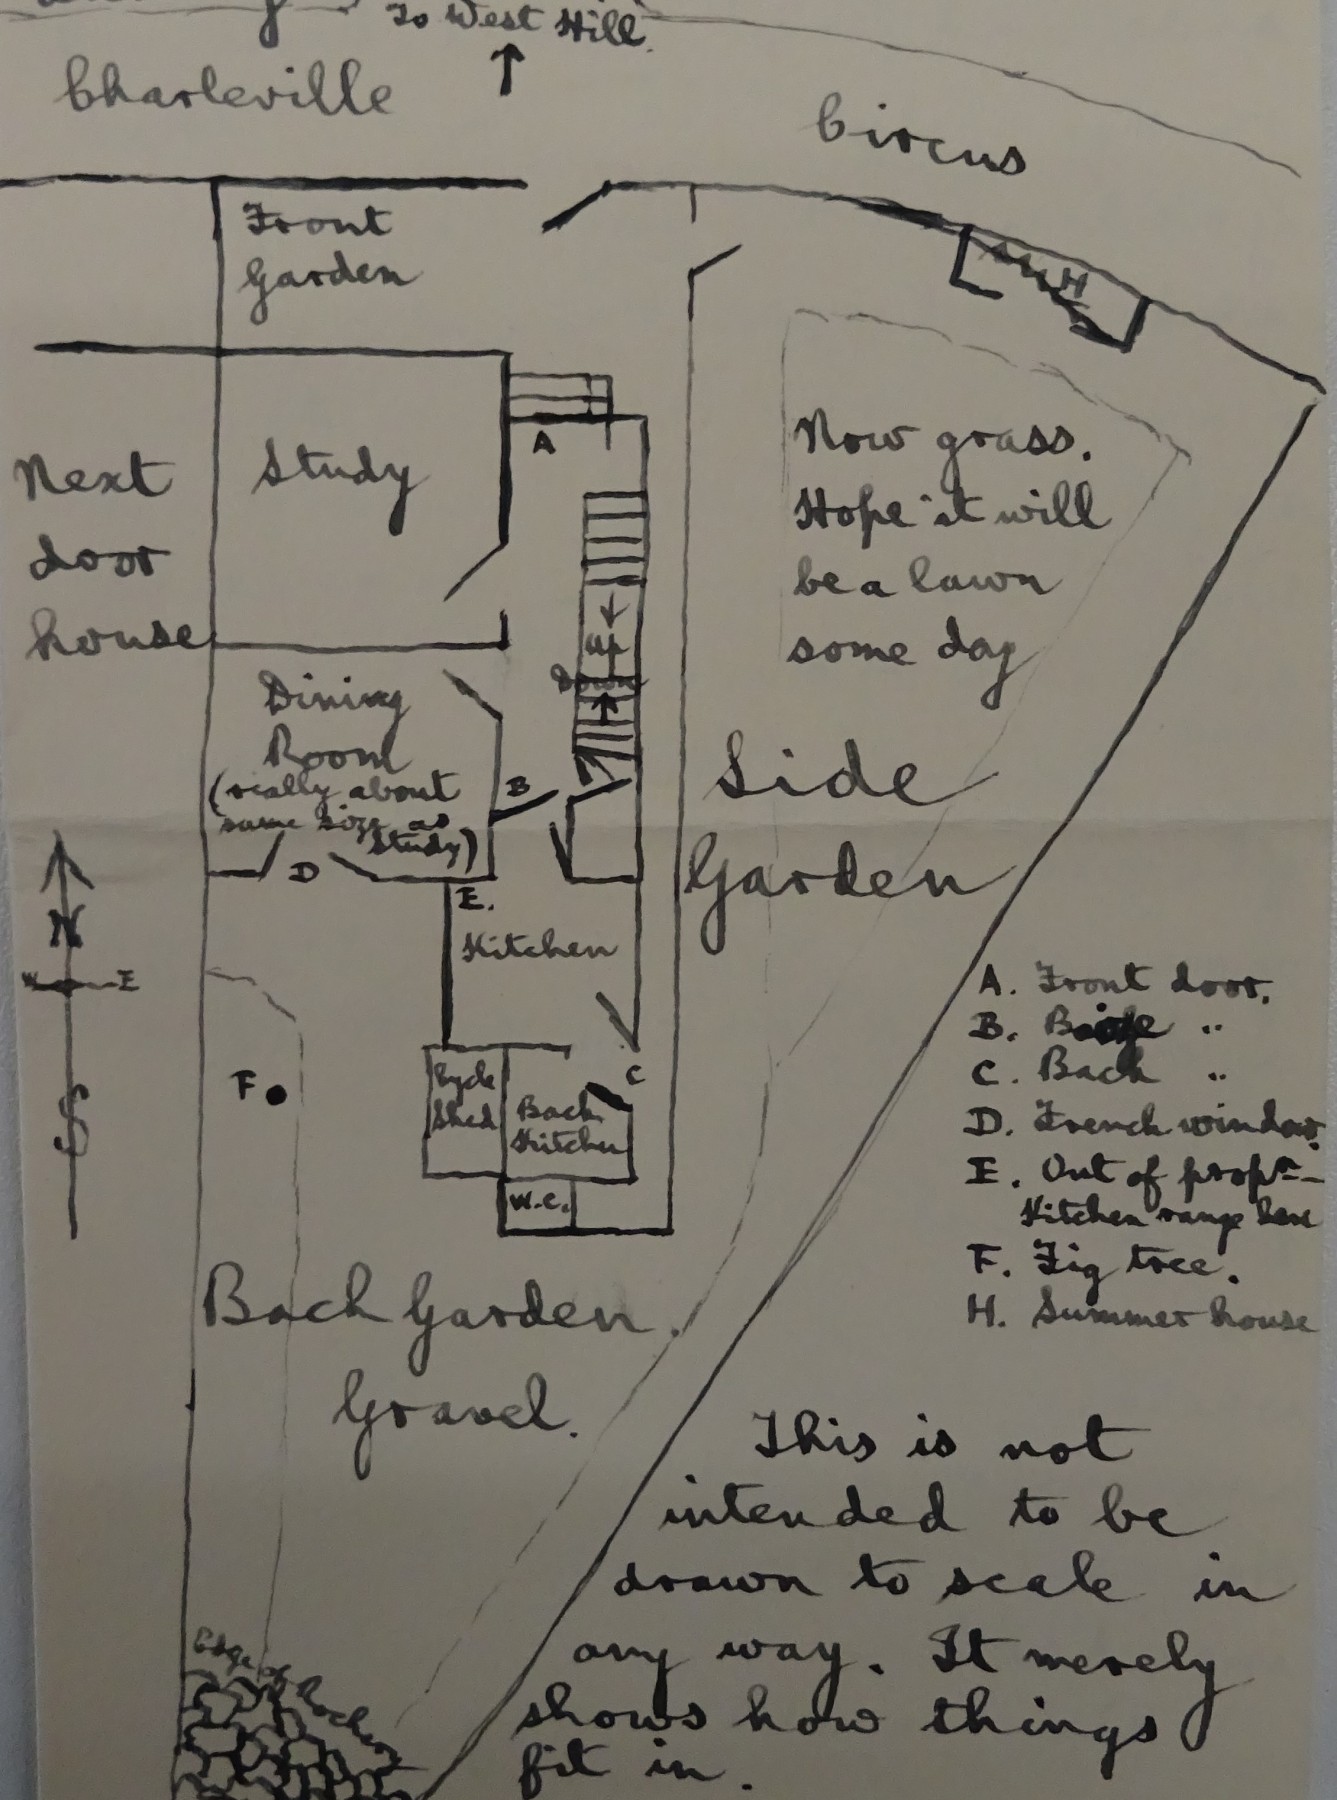 To West Hill.
Charleville
Circus
Front
Garden
H
A
Study
Now grass.
Hope it will
be a lawn
some day
Next
door
house
up
Down
Dining
Room
(really about
same size as
Study)
B
D
Side
Garden
E.
Kitchen
N
W E
S
F
Cycle
Shed
Back
Kitchen
C
W.C.
A. Front door.
B. "
C. Back "
D. French window.
E. Out of propn
Kitchen range here
F. Fig tree.
H. Summer house
Back Garden.
Gravel.
Edge of Rock
This is not
intended to be
drawn to scale in
any way. It merely
shows how things
fit in.